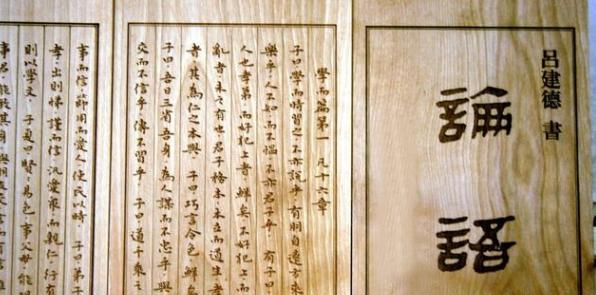 呂建德 書
論語
學而篇第一 凡十六章
子曰學而時習之不亦說乎有朋自遠方來
樂乎人不知而不慍不亦君子乎 有子曰
人也孝弟而好犯上者鮮矣不好犯上而
亂者未之有也君子務本本立而道生孝
者其為仁之本與 子曰巧言令色鮮
子曰吾日三省吾身為人謀而不忠乎與
交而不信乎傳不習乎 子曰道千乘之
事而信節用而愛人使民以時 子曰弟子
孝出則悌謹而信汎愛衆而親仁行有
則以學文 子夏曰賢易色事父母能
事君能致其身與朋友交言而有